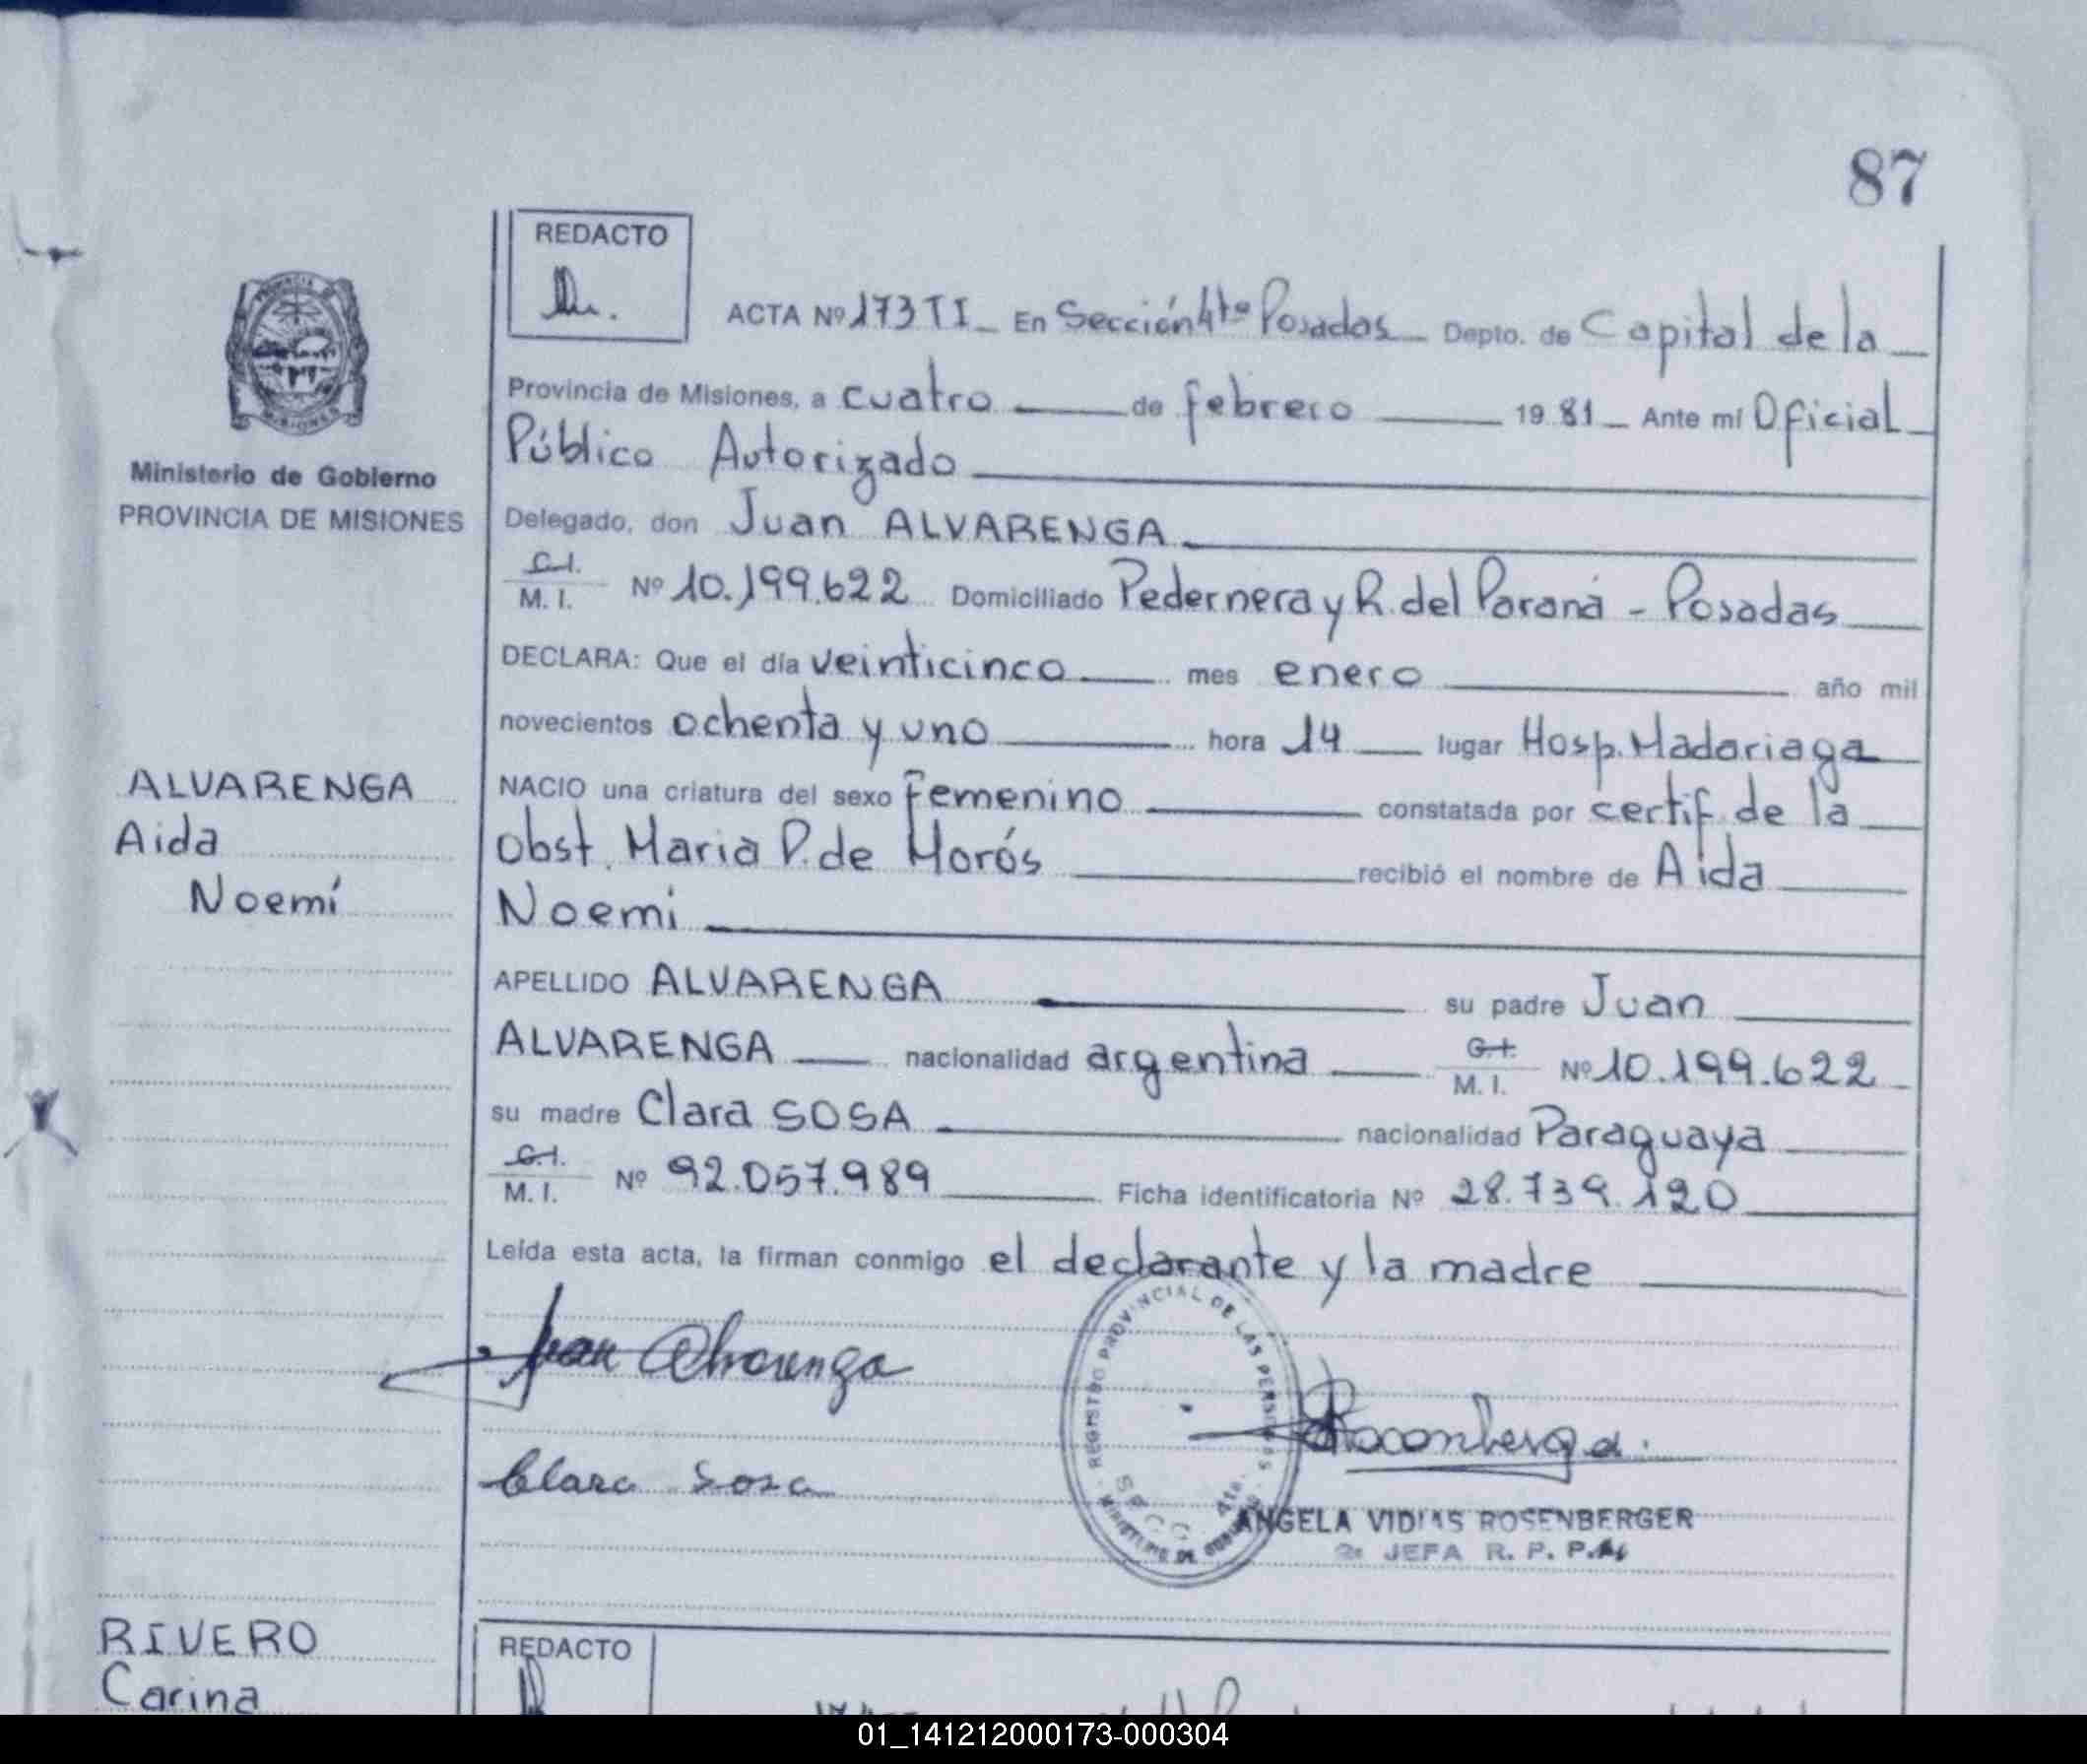 87
REDACTO
ACTA Nº 173 TI En Sección 4ta Posadas Depto. de Capital de la
Provincia de Misiones, a cuatro de febrero 19 81 Ante mí Oficial
Público Autorizado
Delegado, don Juan ALVARENGA
C.I.
M. I. Nº 10.199.622 Domiciliado Pedernera y R. del Paraná - Posadas
DECLARA: Que el día veinticinco mes enero año mil
novecientos ochenta y uno hora 14 lugar Hosp. Madariaga
NACIO una criatura del sexo femenino constatada por certif. de la
Obst. Maria P. de Morós recibió el nombre de Aida
Noemi
APELLIDO ALVARENGA su padre Juan
ALVARENGA nacionalidad argentina C.I. M. I. Nº 10.199.622
su madre Clara SOSA nacionalidad Paraguaya
C.I.
M. I. Nº 92.057.989 Ficha identificatoria Nº 28.739.120
Leída esta acta, la firman conmigo el declarante y la madre
Juan Alvarenga
Clara Sosa
REGISTRO PROVINCIAL DE LAS PERSONAS
SECC. 4ta.
MINISTERIO DE GOBIERNO
ANGELA VIDIAS ROSENBERGER
JEFA R. P. P.
PROVINCIA DE
MISIONES
Ministerio de Gobierno
PROVINCIA DE MISIONES
ALVARENGA
Aida
Noemí
RIVERO
Carina
REDACTO
01_141212000173-000304